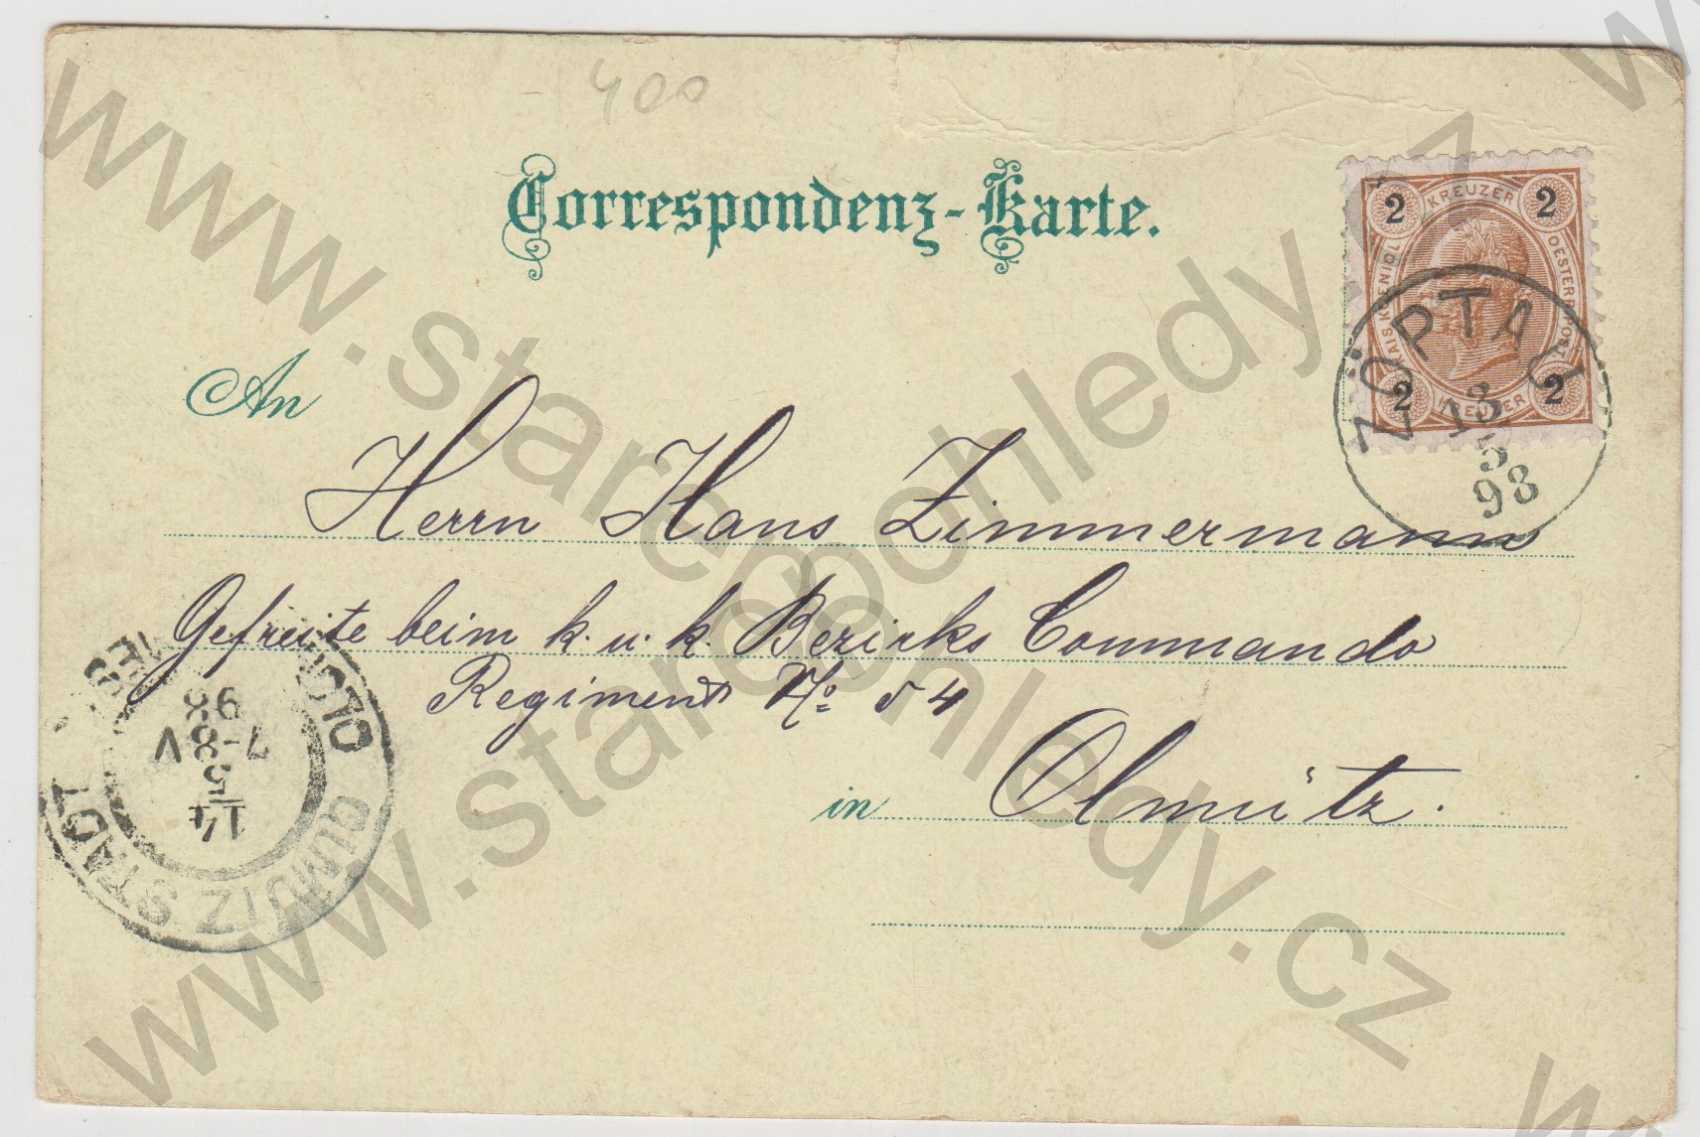 400
Correspondenz-Karte.
2 KREUZER 2
KAIS. KOENIGL. OESTERR. POST
2 KREUZER 2
ZÖPTAU
13
5
98
An
Herrn Hans Zimmermann
Gefreite beim k. u. k. Bezirks Commando
Regiment No 54
in Olmütz.
OLMÜTZ STADT
14
5
7-8 V
98
www.starepohledy.cz
www.starepohledy.cz